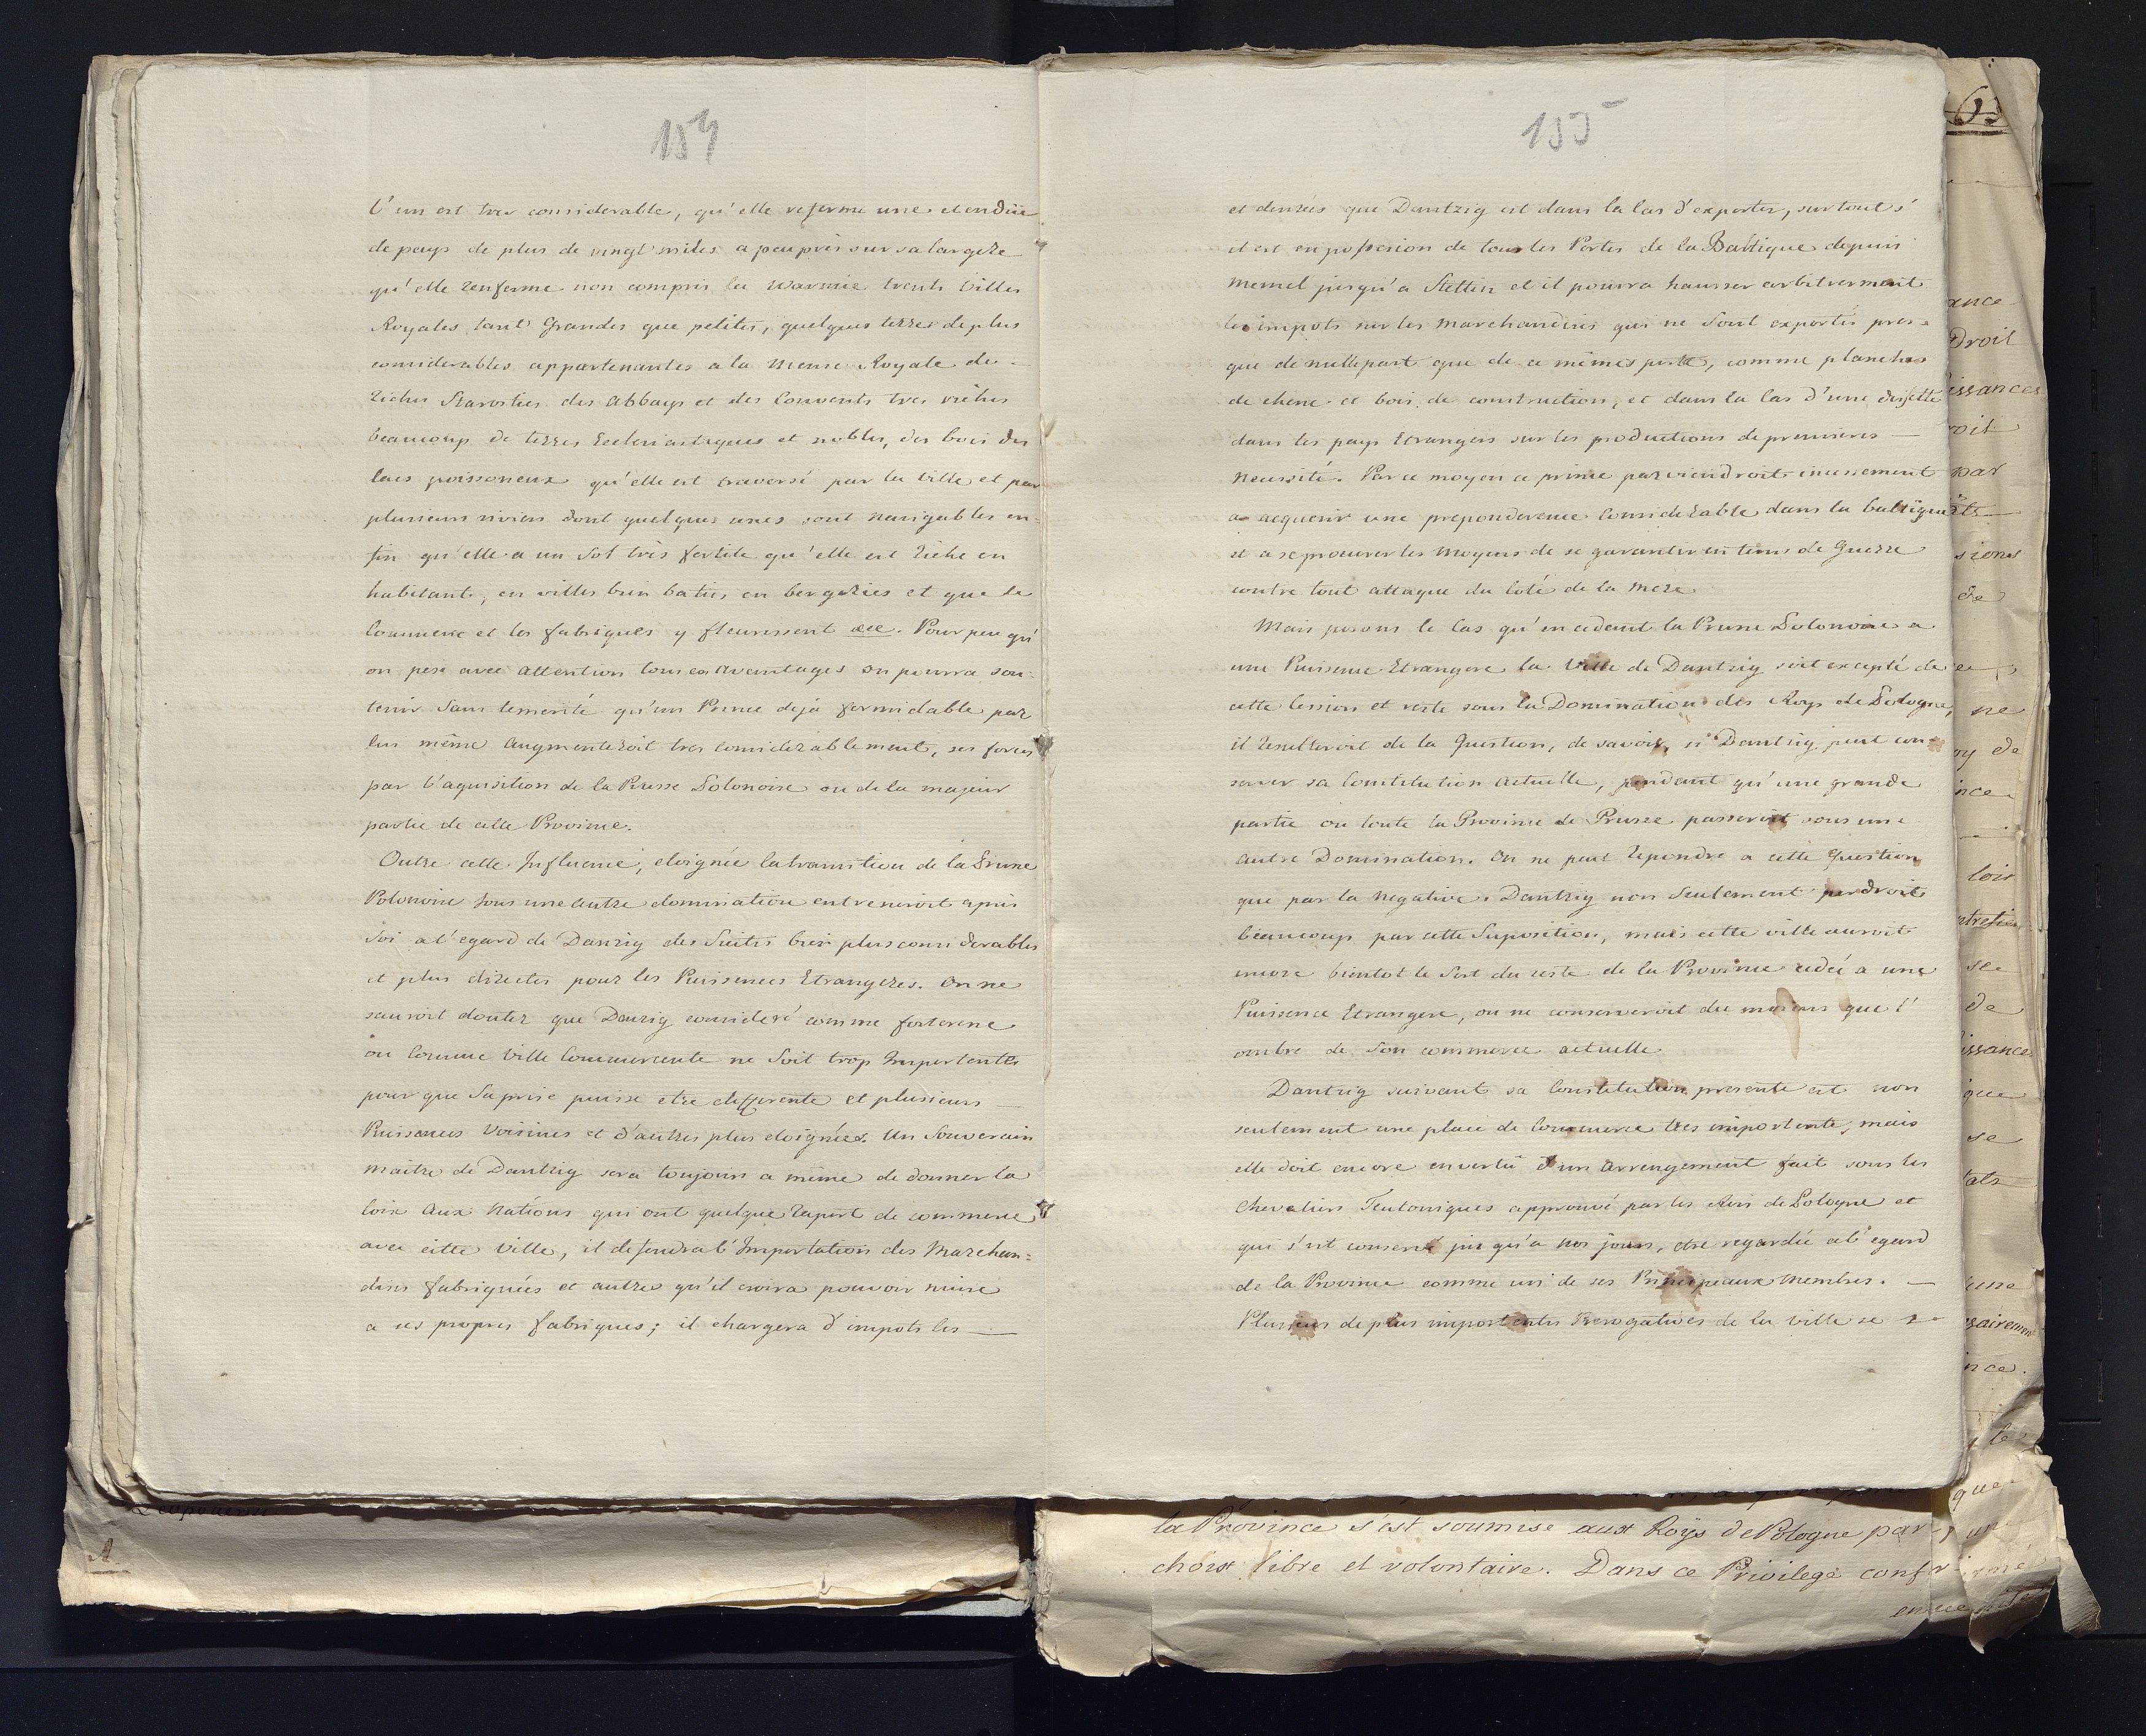 154
l'un est tres considerable, qu'elle referme une etendüe
de pays de plus de vingt miles a peuprès sur sa largere
qu'elle renferme non compris la Warmie trente Villes
Royales tant Grandes que petites, quelques terres de plus
considerables appartenantes a la Mense Royale de
riches Starosties des Abbays et des Couvents tres riches
beaucoup de terres Ecclesiastiques et nobles, des bois des
lacs poissoneux qu'elle est traversé par la Ville et par
plusieurs riviers dont quelques unes sont navigables en-
fin qu'elle a un Sol très fertile qu'elle est riche en
habitants, en villes bien baties en bergeries et que le
Commerce et les fabriques y fleurissent &cc. Pour peu qu'
on pese avec attention tous ces avantages on pourra sou-
tenir Sans temerité qu'un Prince dejà formidable par
lui même augmenteroit tres considerablement, ses forces
par l'aquisition de la Prusse Polonoise ou de la majeur
partie de cette Province.
Outre cette Influence, eloignée la transition de la Prusse
Polonoise sous une autre domination entreneroit apris
Soi a l'egard de Danzig des Suites bien plus considerables
et plus directes pour les Puissences Etrangeres. On ne
sauroit douter que Danzig consideré comme forteresse
ou Comme Ville Commercente ne Soit trop Importente
pour que Saprise puisse etre differente et plusieurs
Puissences Voisines et d'autres plus eloignées. Un Souverain
maitre de Dantzig sera toujours a même de donner la
loix aux Nations qui ont quelque raport de commerce
avec cette Ville, il defendra l'Importation des Marchan=
dises fabriqués et autres qu'il croira pouvoir nuire
a ses propres fabriques; il chargera d'impots les
155
et denrées que Dantzig est dans la Cas d'exporter, surtout s'
il est en possesion de tous les Portes de la Baltique depuis
Memel jusqu'a Stettin et il pourra hausser arbitrerment
les impots sur les marchandises qui ne Sont exportés pres-
que de nullepart que de ce mêmes ports, comme planches
de chene et bois de construction, et dans la Cas d'une disette
dans les pays Etrangers sur les productions de premieres
Necessité. Par ce moyen ce prince parviendroit incessement
a acquerir une preponderence Considerable dans la baltique
et a se procurer les Moyens de se garantir en tems de Guerre
contre tout attaque du Coté de la Mere
Mais posons le Cas qu'en cedant la Prusse Polonoise a
une Puissence Etrangere la Ville de Dantzig soit excepté de
cette Cession et reste sous la Domination des Roys de Pologne,
il resulteroit de la Question, de savoir, si Dantzig peut con-
server sa Constitution actuelle, pendant qu'une grande
partie ou toute la Province de Prusse passeroit sous une
autre Domination. On ne peut repondre a cette Question
que par la negative. Dantzig non Seulement perdroit
beaucoup par cette Suposition, mais cette ville auroit
encore bientot le Sort du reste de la Province cedée a une
Puissence Etrangere, ou ne conserveroit du moins que l'
ombre de Son commerce actuelle
Dantzig suivant sa Constitution presente est non
seulement une place de Commerce tres importente, mais
elle doit encore envertû d'un arrengement fait sous les
Chevaliers Teutoniques approuvé par les Rois de Pologne et
qui s'est conservé jusqu'a nos jours, etre regardée a l'egard
de la Province comme un de ses Principeaux Membres.
Plusieurs de plus importentes Prerogatives de la ville se r
la Province s'est soumise aux Roÿs de Pologne par
choix libre et volontaire. Dans ce Privilege conf
ance
Droit
issances
oit
par
sions
de
ne
oy de
nce
loix
ntretien
se
de
issance
que
se
tats
une
sairement
nce.
le
que